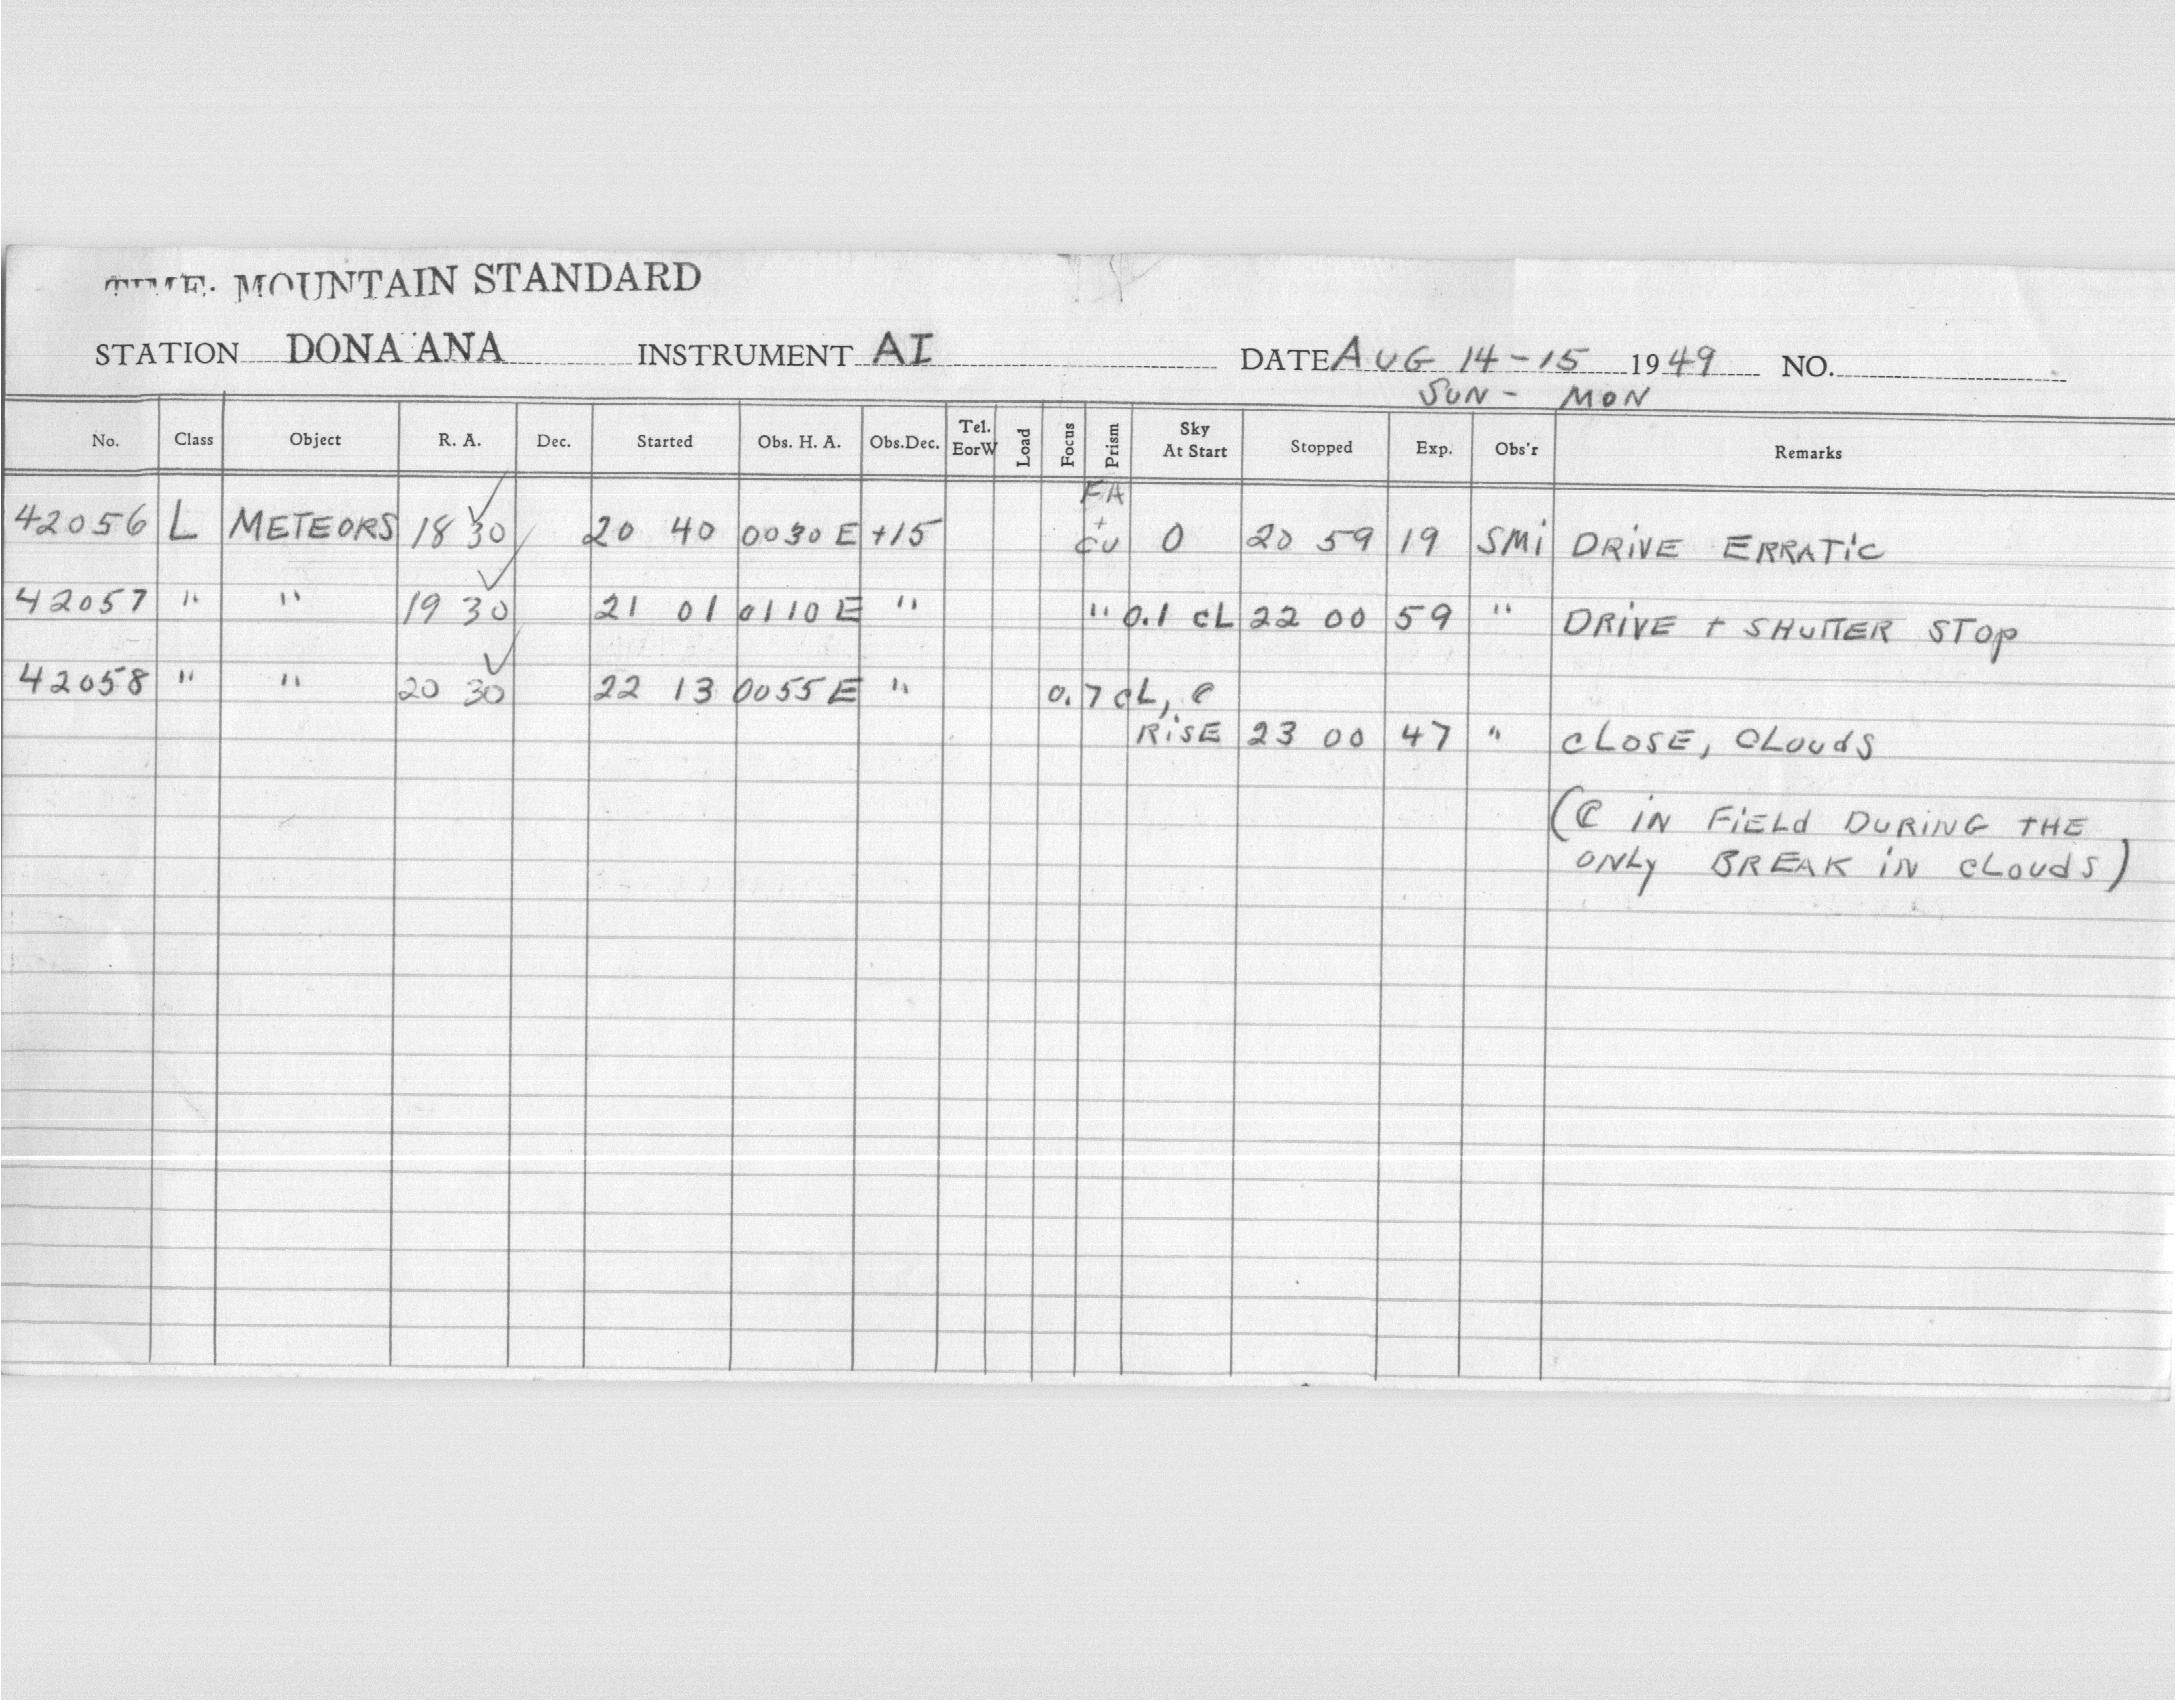 TIME: MOUNTAIN STANDARD
STATION DONA ANA INSTRUMENT AI DATE AUG 14-15 1949 NO.
SUN - MON
No. Class Object R. A. Dec. Started Obs. H. A. Obs.Dec. Tel. EorW Load Focus Prism Sky At Start Stopped Exp. Obs'r Remarks
FA
42056 L METEORS 18 30 ✓ 20 40 0030 E +15 + CU 0 20 59 19 SMi DRiVE ERRATiC
42057 " " 19 30 ✓ 21 01 0110 E " " 0.1 cL 22 00 59 " DRiVE + SHUTTER STOP
42058 " " 20 30 ✓ 22 13 0055 E " 0.7 cL, ☾
RiSE 23 00 47 " CLOSE, CLOUdS
(☾ iN FiELd DURiNG THE
ONLy BREAK iN CLOUdS)